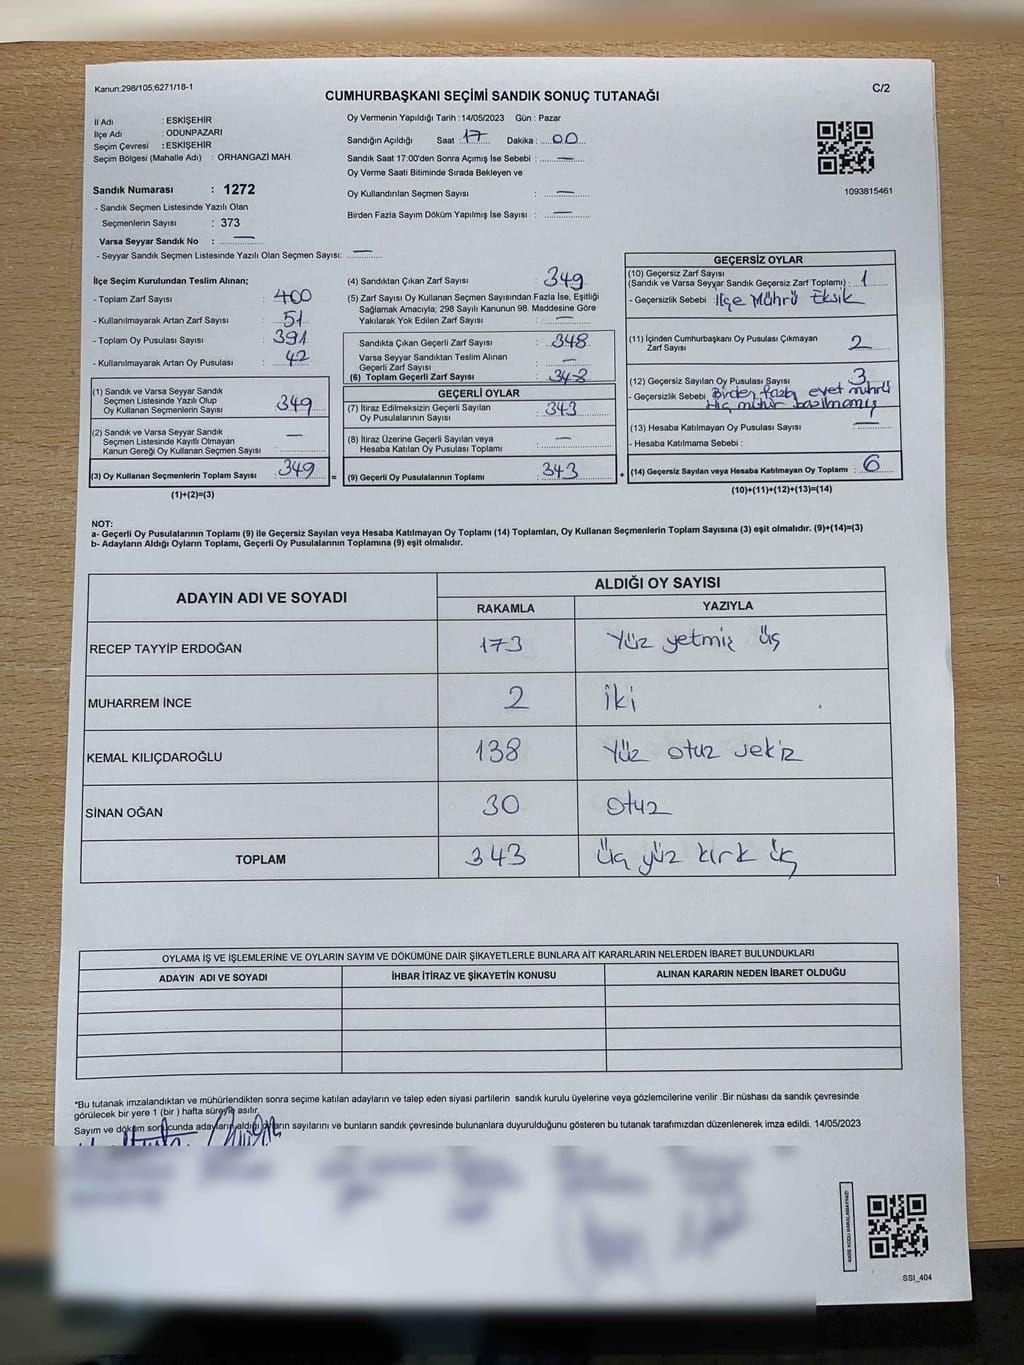 Kanun;298/105;6271/18-1
C/2
CUMHURBAŞKANI SEÇİMİ SANDIK SONUÇ TUTANAĞI
İl Adı : ESKİŞEHİR
İlçe Adı : ODUNPAZARI
Seçim Çevresi : ESKİŞEHİR
Seçim Bölgesi (Mahalle Adı) : ORHANGAZİ MAH.
Sandık Numarası : 1272
- Sandık Seçmen Listesinde Yazılı Olan
Seçmenlerin Sayısı : 373
Varsa Seyyar Sandık No : —
- Seyyar Sandık Seçmen Listesinde Yazılı Olan Seçmen Sayısı: —
Oy Vermenin Yapıldığı Tarih : 14/05/2023 Gün : Pazar
Sandığın Açıldığı Saat : 17 Dakika : 00
Sandık Saat 17:00'den Sonra Açımış İse Sebebi : —
Oy Verme Saati Bitiminde Sırada Bekleyen ve
Oy Kullandırılan Seçmen Sayısı : —
Birden Fazla Sayım Döküm Yapılmış İse Sayısı : —
1093815461
İlçe Seçim Kurulundan Teslim Alınan;
- Toplam Zarf Sayısı : 400
- Kullanılmayarak Artan Zarf Sayısı : 51
- Toplam Oy Pusulası Sayısı : 391
- Kullanılmayarak Artan Oy Pusulası : 42
(1) Sandık ve Varsa Seyyar Sandık
Seçmen Listesinde Yazılı Olup
Oy Kullanan Seçmenlerin Sayısı : 349
(2) Sandık ve Varsa Seyyar Sandık
Seçmen Listesinde Kayıtlı Olmayan
Kanun Gereği Oy Kullanan Seçmen Sayısı : —
(3) Oy Kullanan Seçmenlerin Toplam Sayısı : 349
(1)+(2)=(3)
(4) Sandıktan Çıkan Zarf Sayısı : 349
(5) Zarf Sayısı Oy Kullanan Seçmen Sayısından Fazla İse, Eşitliği
Sağlamak Amacıyla; 298 Sayılı Kanunun 98. Maddesine Göre
Yakılarak Yok Edilen Zarf Sayısı : —
Sandıkta Çıkan Geçerli Zarf Sayısı : 348
Varsa Seyyar Sandıktan Teslim Alınan
Geçerli Zarf Sayısı : —
(6) Toplam Geçerli Zarf Sayısı : 348
GEÇERLİ OYLAR
(7) İtiraz Edilmeksizin Geçerli Sayılan
Oy Pusulalarının Sayısı : 343
(8) İtiraz Üzerine Geçerli Sayılan veya
Hesaba Katılan Oy Pusulası Toplamı : —
= (9) Geçerli Oy Pusulalarının Toplamı : 343
GEÇERSİZ OYLAR
(10) Geçersiz Zarf Sayısı
(Sandık ve Varsa Seyyar Sandık Geçersiz Zarf Toplamı) : 1
- Geçersizlik Sebebi : İlçe Mührü Eksik
(11) İçinden Cumhurbaşkanı Oy Pusulası Çıkmayan
Zarf Sayısı : 2
(12) Geçersiz Sayılan Oy Pusulası Sayısı : 3
- Geçersizlik Sebebi : Birden fazla evet mührü
Hiç mühür basılmamış
(13) Hesaba Katılmayan Oy Pusulası Sayısı : —
- Hesaba Katılmama Sebebi :
+ (14) Geçersiz Sayılan veya Hesaba Katılmayan Oy Toplamı : 6
(10)+(11)+(12)+(13)=(14)
NOT:
a- Geçerli Oy Pusulalarının Toplamı (9) ile Geçersiz Sayılan veya Hesaba Katılmayan Oy Toplamı (14) Toplamları, Oy Kullanan Seçmenlerin Toplam Sayısına (3) eşit olmalıdır. (9)+(14)=(3)
b- Adayların Aldığı Oyların Toplamı, Geçerli Oy Pusulalarının Toplamına (9) eşit olmalıdır.
ADAYIN ADI VE SOYADI
ALDIĞI OY SAYISI
RAKAMLA YAZIYLA
RECEP TAYYİP ERDOĞAN 173 Yüz yetmiş üç
MUHARREM İNCE 2 iki
KEMAL KILIÇDAROĞLU 138 Yüz otuz sekiz
SİNAN OĞAN 30 otuz
TOPLAM 343 Üç yüz kırk üç
OYLAMA İŞ VE İŞLEMLERİNE VE OYLARIN SAYIM VE DÖKÜMÜNE DAİR ŞİKAYETLERLE BUNLARA AİT KARARLARIN NELERDEN İBARET BULUNDUKLARI
ADAYIN ADI VE SOYADI İHBAR İTİRAZ VE ŞİKAYETİN KONUSU ALINAN KARARIN NEDEN İBARET OLDUĞU
*Bu tutanak imzalandıktan ve mühürlendikten sonra seçime katılan adayların ve talep eden siyasi partilerin sandık kurulu üyelerine veya gözlemcilerine verilir .Bir nüshası da sandık çevresinde
görülecek bir yere 1 (bir ) hafta süreyle asılır.
Sayım ve döküm sonucunda adayların aldığı oyların sayılarını ve bunların sandık çevresinde bulunanlara duyurulduğunu gösteren bu tutanak tarafımızdan düzenlenerek imza edildi. 14/05/2023
KARE KODU KARALAMAYINIZ!
SSI_404